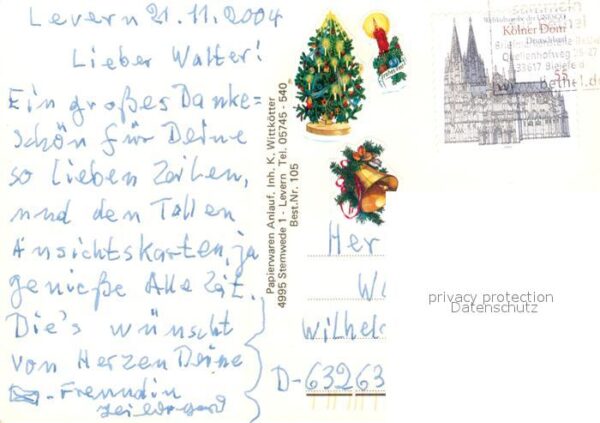 Levern 21.11.2004
Lieber Walter!
Ein großes Danke=
schön für Deine
so lieben Zeilen,
und den Tollen
Ansichtskarten, ja
genieße Alle Zeit.
Die's wünscht
von Herzen Deine
-Freundin
Papierwaren Anlauf, Inh. K. Wittkötter
4995 Stemwede 1 - Levern Tel. 05745 - 540
Best.Nr. 105
Weltkulturerbe der UNESCO
Kölner Dom
Deutschland
55
sammeln
Briefmarkenstelle Bethel
Quellenhofweg 25-27
33617 Bielefeld
bethel.de
Her
Wa
Wilhel
D-63263
privacy protection
Datenschutz